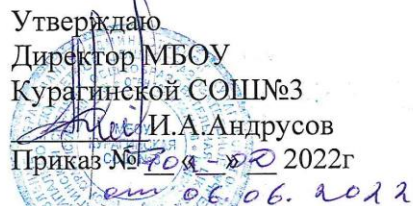 Утверждаю
Директор МБОУ
Курагинской СОШ№3
И.А.Андрусов
Приказ № « » 2022г
от 06.06.2022